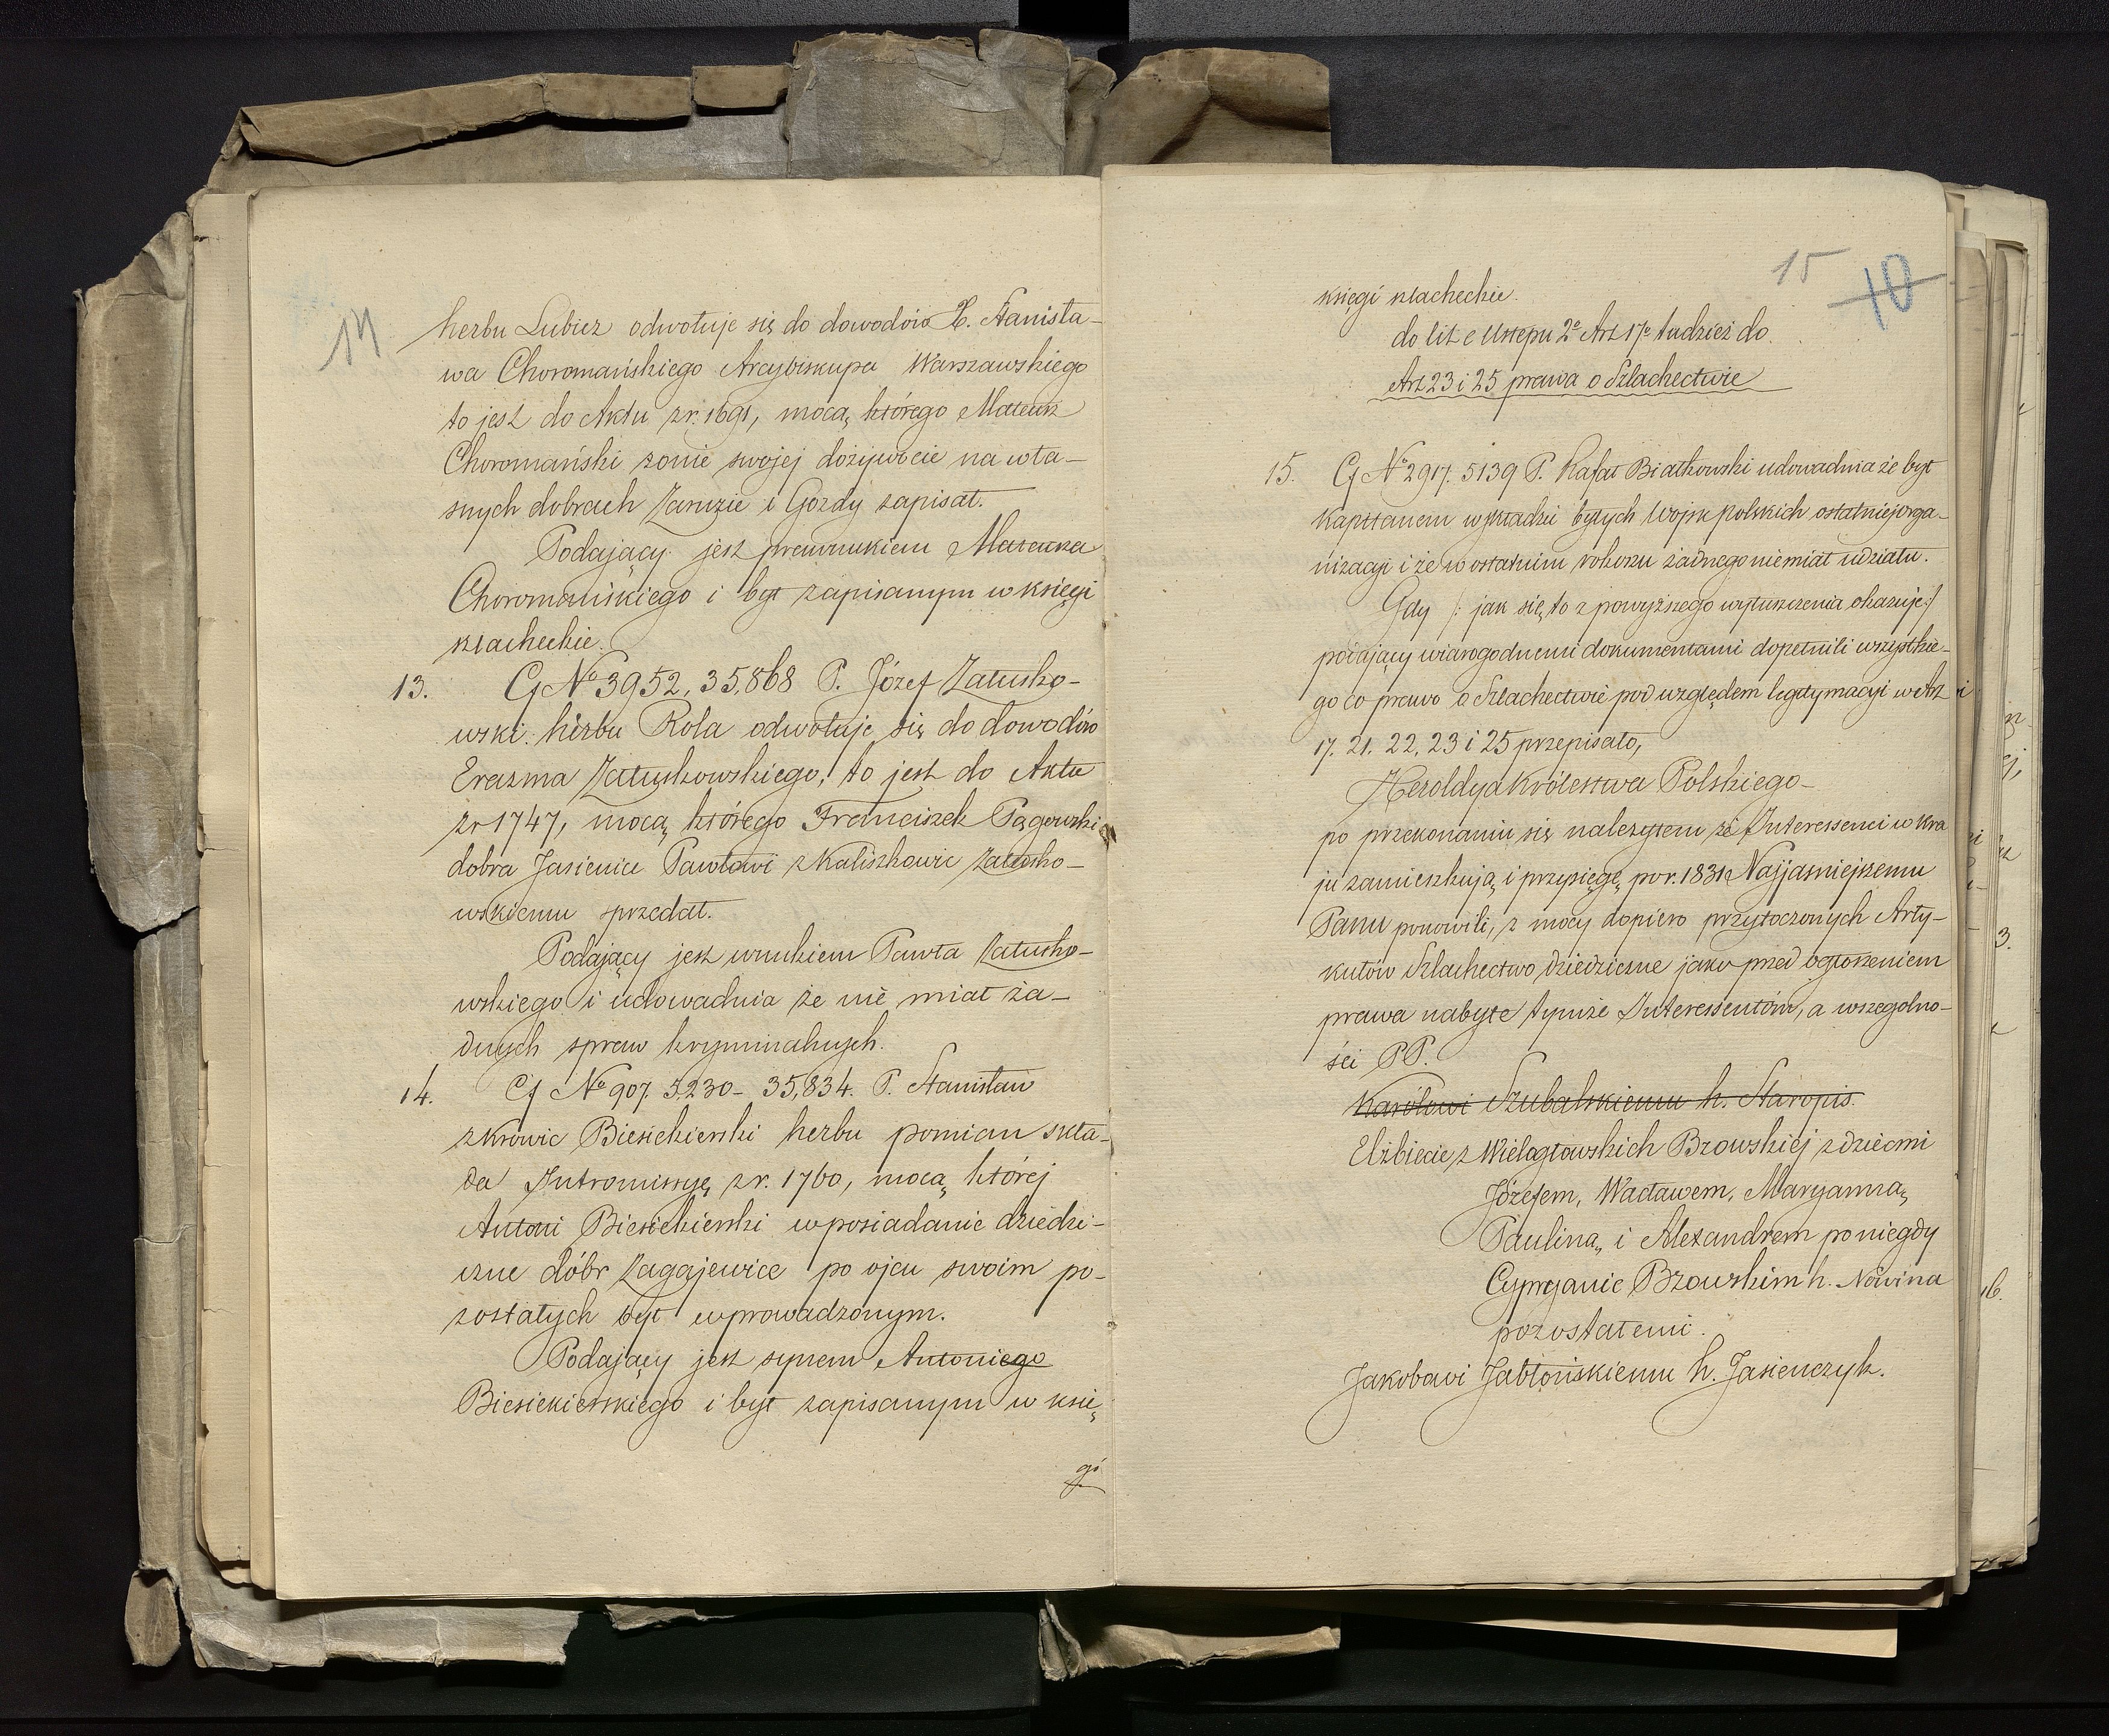 14
herbu Lubicz odwołuje się do dowodów X. Stanisła-
wa Choromańskiego Arcybiskupa Warszawskiego
to jest do Aktu z r. 1691, mocą którego Mateusz
Choromański żonie swojej dożywocie na wła-
snych dobrach Zaruzie i Gozdy zapisał.
Podający jest prawnukiem Mateusza
Choromańskiego i był zapisanym w księgi
szlacheckie.
13. Cf No 3952, 35,868 P. Józef Załusko-
wski herbu Rola odwołuje się do dowodów
Erazma Załuskowskiego, to jest do Aktu
z r 1747, mocą którego Franciszek Pągowski
dobra Jasienice Pawłowi z Kaliszkowic Załusko-
wskiemu sprzedał.
Podający jest wnukiem Pawła Załusko-
wskiego i udowadnia że nie miał ża-
dnych spraw kryminalnych.
14. Cf No 907. 5,230- 35,834. P. Stanisław
z Krowic Biesiekierski herbu pomian skła-
da Intromissyę z r. 1760, mocą której
Antoni Biesiekierski w posiadanie dziedzi-
czne dóbr Zagajewice po ojcu swoim po-
zostałych był wprowadzonym.
Podający jest synem Antoniego
Biesiekierskiego i był zapisanym w księ
gi
15 10
księgi szlacheckie.
do lit e Ustępu 2o Art 17o tudzież do
Art 23 i 25 prawa o Szlachectwie
15. Cf No 2917. 5139 P. Rafał Białkowski udowadnia że był
Kapitanem w składzie byłych Wojsk polskich ostatniej orga-
nizacyi i że w ostatnim rokoszu żadnego nie miał udziału.
Gdy /: jak się to z powyższego wyłuszczenia okazuje :/
podający wiarogodnemi dokumentami dopełnili wszystkie-
go co prawo o Szlachectwie pod względem legitymacyi w Art
17. 21. 22, 23 i 25 przepisało,
Heroldya Królestwa Polskiego-
po przekonaniu się należytem że Interessenci w kra
ju zamieszkują i przysięgę po r. 1831 Najjaśniejszemu
Panu ponowili, z mocy dopiero przytoczonych Arty-
kułów Szlachectwo dziedziczne jako przed ogłoszeniem
prawa nabyte tymże Interessentom, a wszególno-
ści PP.
Karolowi Szubalskiemu h. Staropis.
Elżbiecie z Wielogłowskich Bzowskiej z dziećmi
Józefem, Wacławem, Maryanną,
Pauliną, i Alexandrem po niegdy
Cypryanie Bzowskim h. Nowina
pozostałemi.
Jakobowi Jabłońskiemu h. Jasieńczyk.